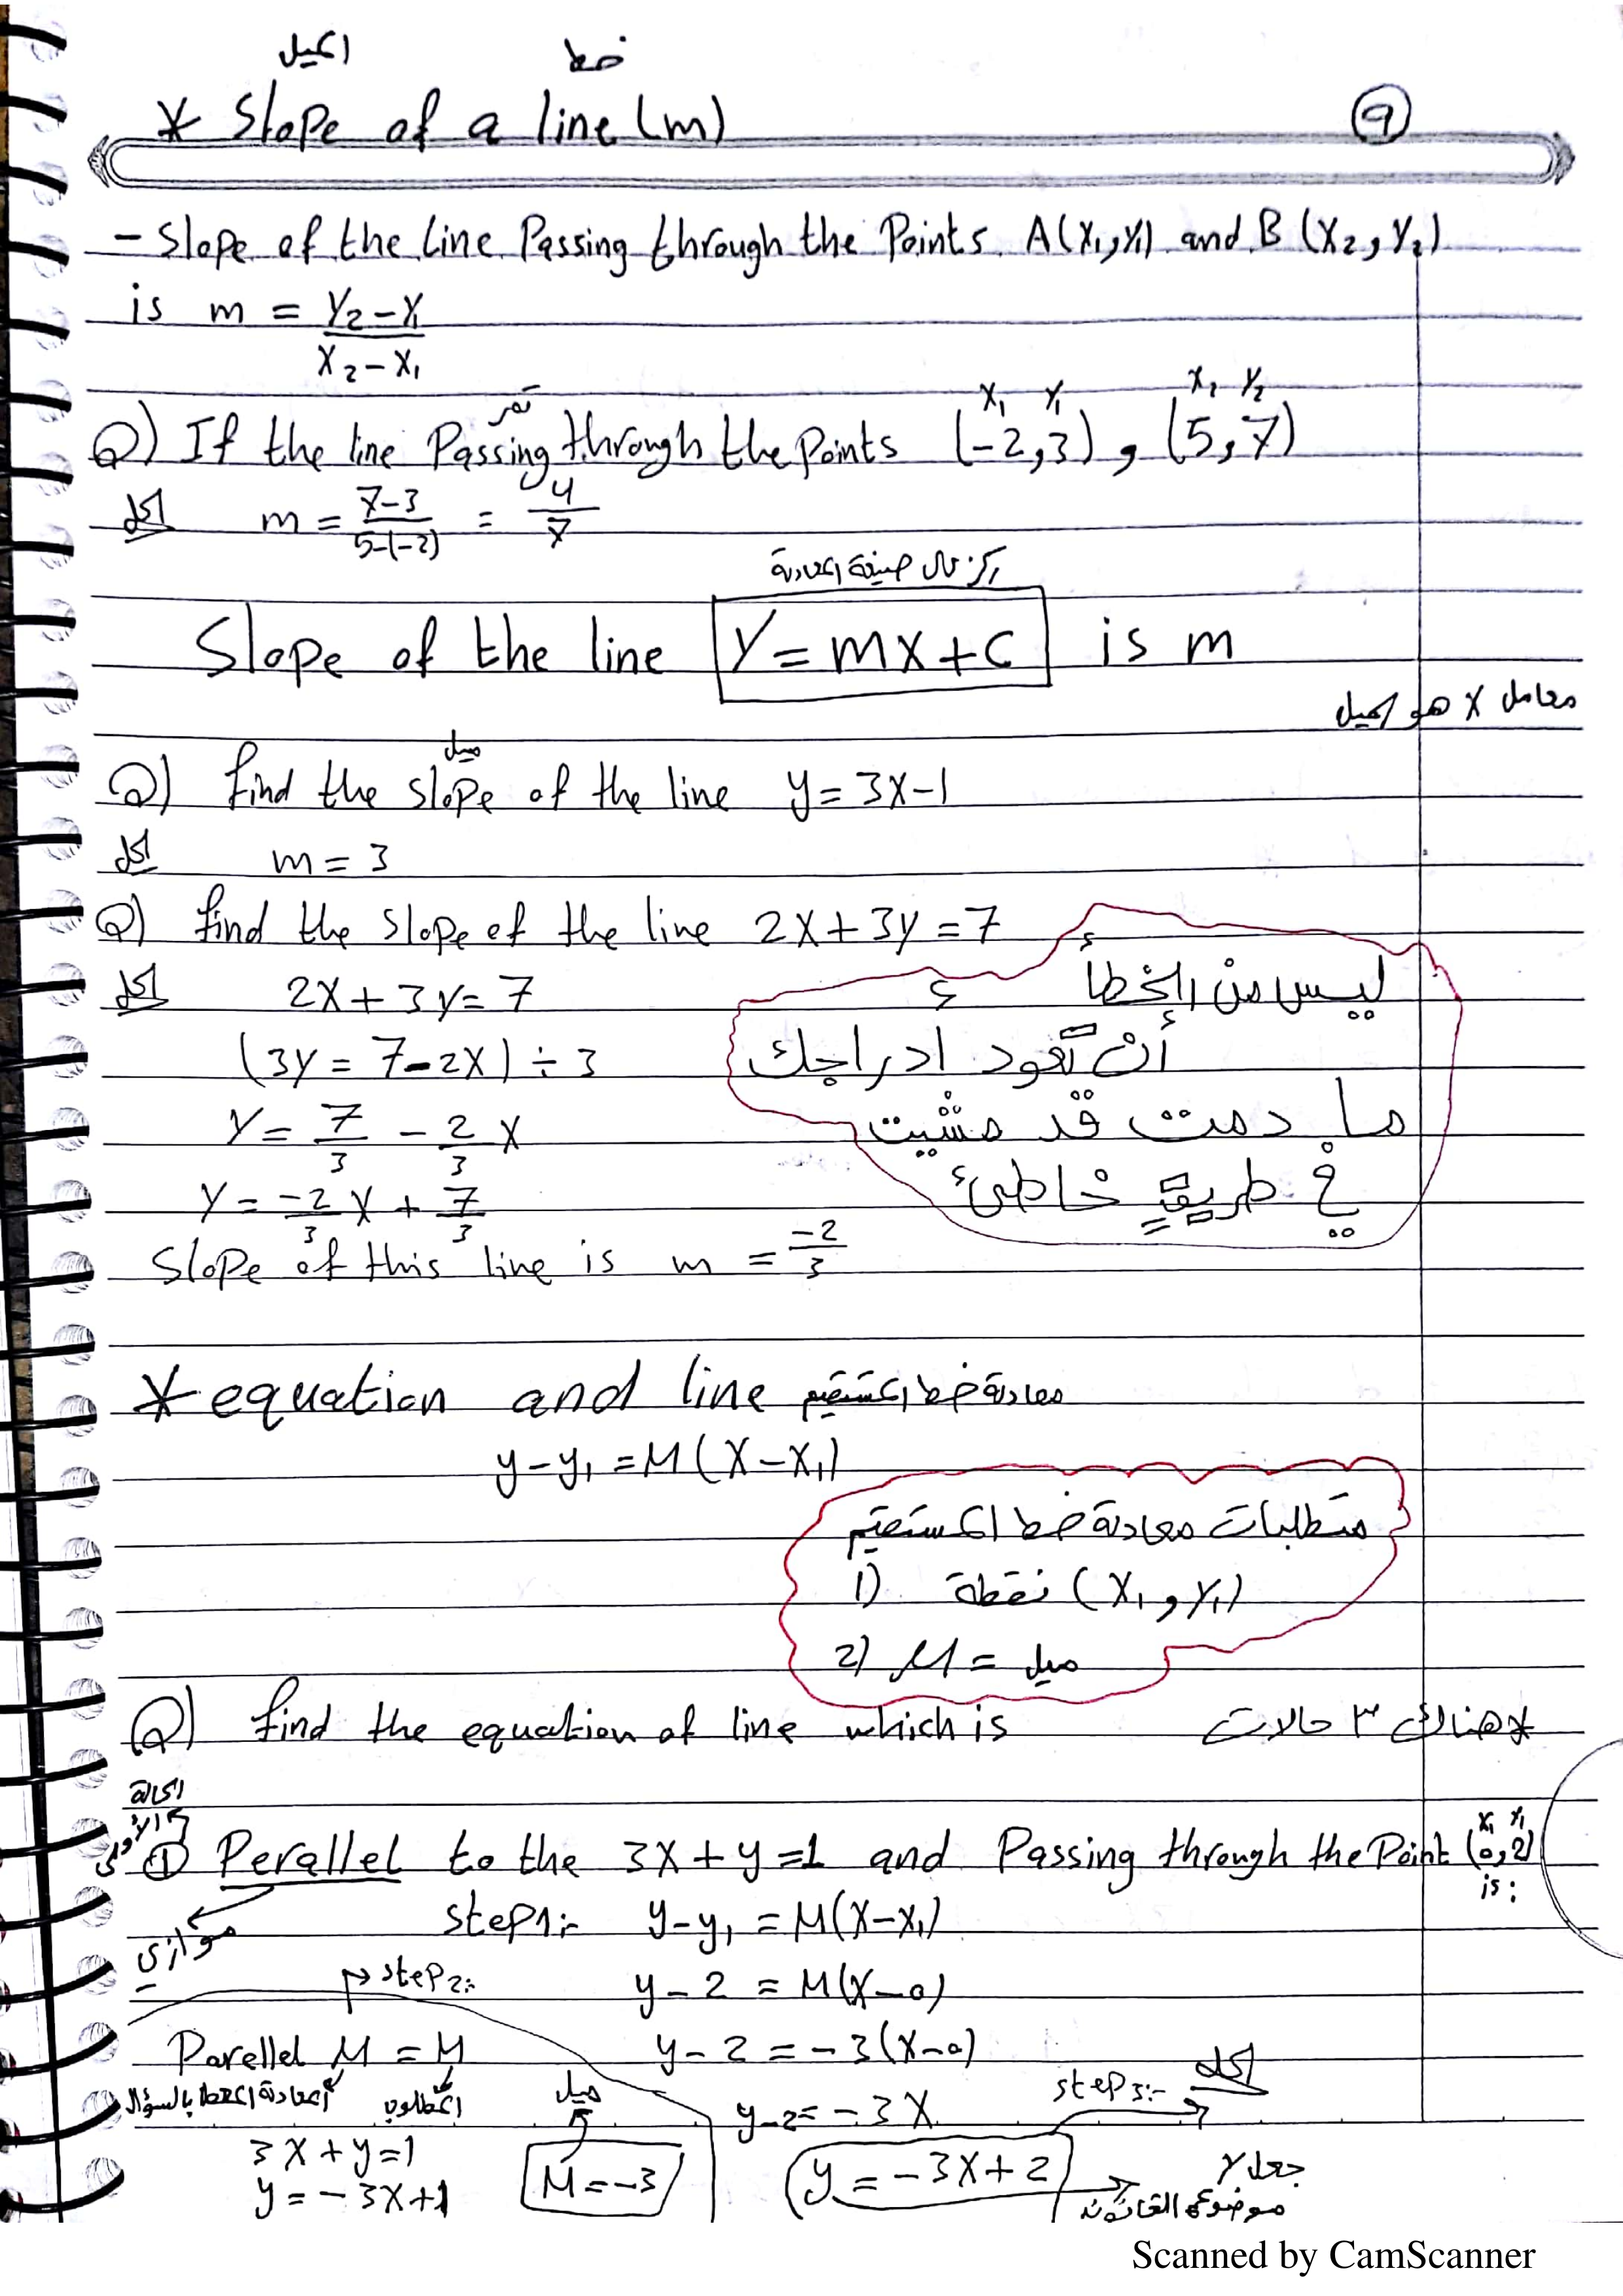 الميل خط
* Slope of a line (m) 9
- Slope of the line Passing through the Points A(X₁,Y₁) and B (X₂, Y₂)
is m = Y₂-Y₁ / X₂-X₁
تمر X₁ Y₁ X₂ Y₂
Q) If the line Passing through the Points (-2,3) , (5,7)
الحل m = 7-3 / 5-(-2) = 4/7
ركز على صيغة المعادلة
Slope of the line Y = mX+C is m
معامل X هو الميل
ميل
Q) find the slope of the line y = 3X-1
الحل m = 3
Q) find the slope of the line 2X+3y = 7
الحل 2X+3y = 7
(3y = 7-2X) ÷ 3
Y = 7/3 - 2/3 X
Y = -2/3 X + 7/3
Slope of this line is m = -2/3
ليس من الخطأ
أن تعود ادراجك
ما دمت قد مشيت
في طريقٍ خاطئ
* equation and line معادلة خط المستقيم
y-y₁ = M(X-X₁)
متطلبات معادلة خط المستقيم
1) نقطة (X₁, Y₁)
2) M = ميل
Q) find the equation of line which is * هناك ٣ حالات
الحالة الأولى
X₁ Y₁
① Perallel to the 3X+y=1 and Passing through the Point (0,2) is:
موازي
step1:- y-y₁ = M(X-X₁)
y-2 = M(X-0)
y-2 = -3(X-0)
y-2 = -3X
step3:- الحل
y = -3X+2
جعل y
موضوع القانون
step2:-
Parellel M = M
المعادلة المعطا بالسؤال المطلوب
3X+y=1
y = -3X+1
ميل
M = -3
Scanned by CamScanner